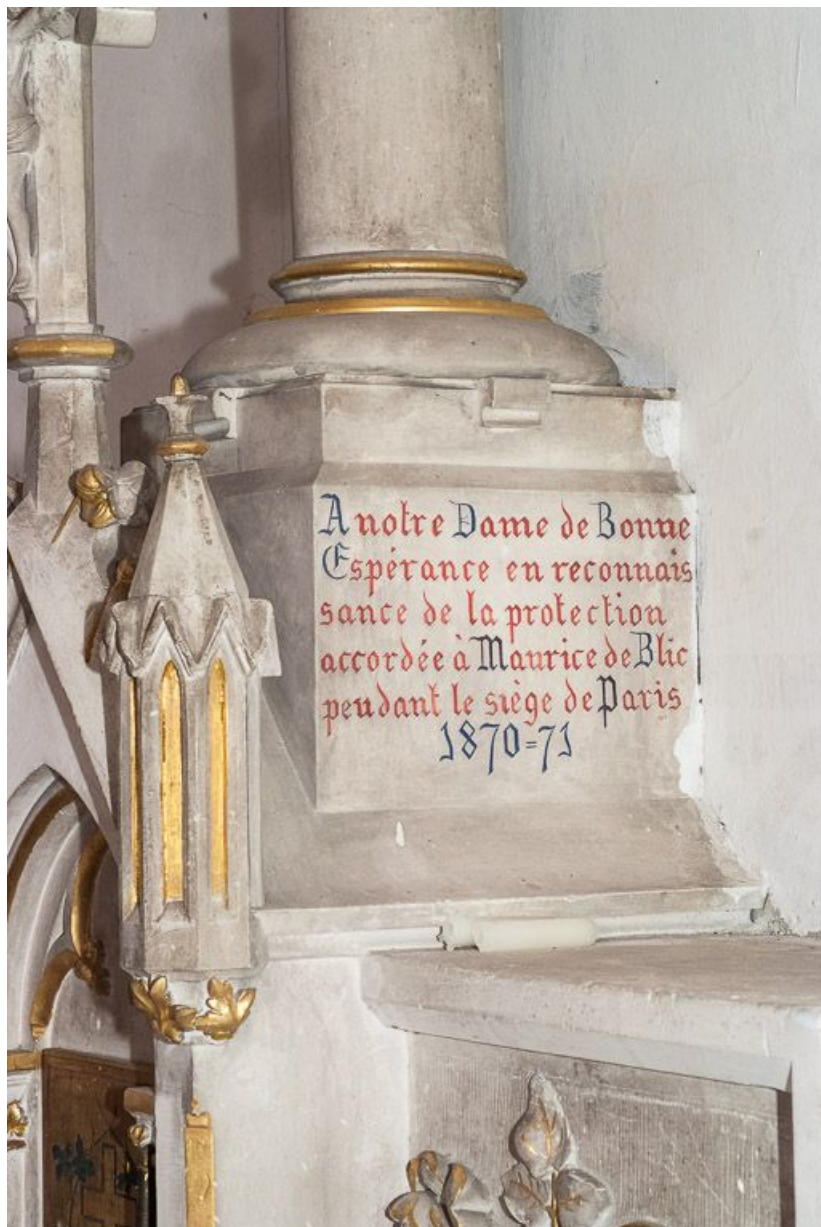 A notre Dame de Bonne
Espérance en reconnais
sance de la protection
accordée à Maurice de Blic
pendant le siège de Paris
1870=71